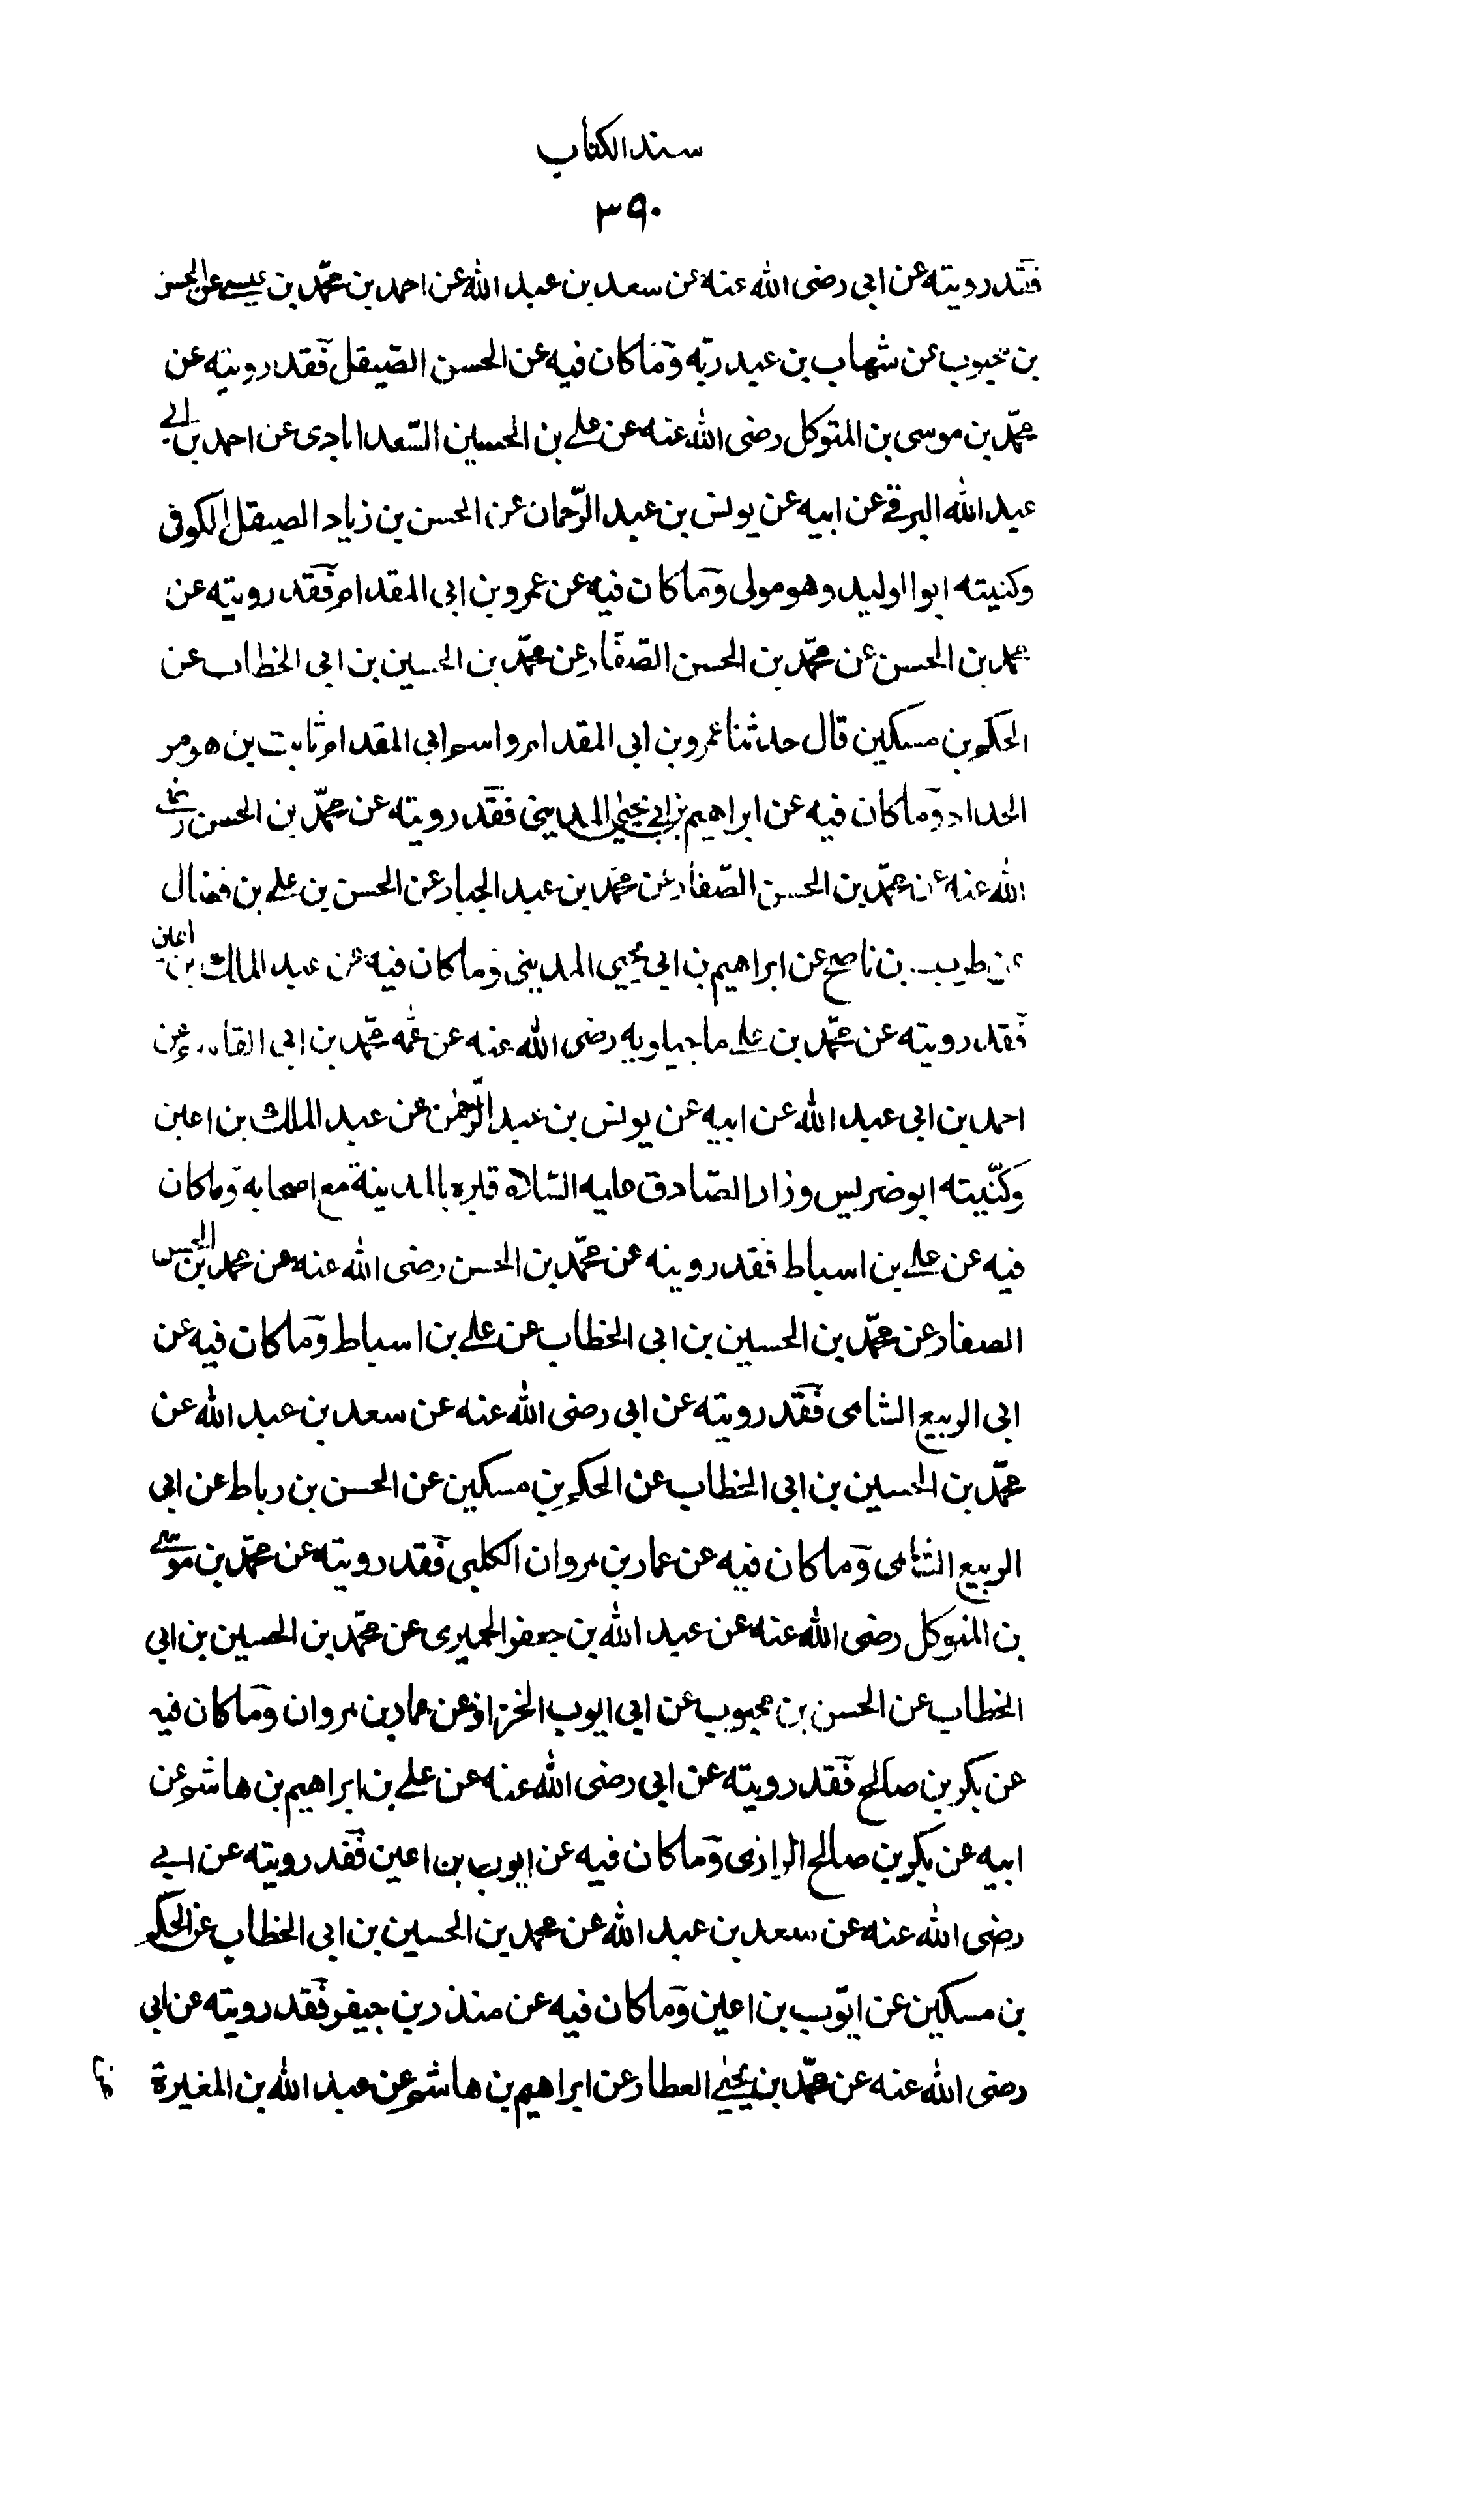 سند الكتاب
٣٩٠
فقد رويته عن ابى رضى الله عنه عن سعد بن عبد الله عن احمد بن محمّد بن عيسى عن الحسن
بن محبوب عن شهاب بن عبد ربّه وما كان فيه عن الحسن الصّيقل فقد رويته عن
محمّد بن موسى بن المتوكل رضى الله عنه عن على بن الحسين السّعدابادى عن احمد بن ابى
عبد الله البرقى عن ابيه عن يونس بن عبد الرّحمان عن الحسن بن زياد الصيقل الكوفى
وكنيته ابو الوليد وهو مولى وما كان فيه عن عمرو بن ابى المقدام فقد رويته عن
محمد بن الحسن عن محمّد بن الحسن الصّفّار عن محمّد بن الحسين بن ابى الخطاب عن
الحكم بن مسكين قال حدثنا عمرو بن ابى المقدام واسم ابى المقدام ثابت بن هرمز
الحداد وما كان فيه عن ابراهيم بن ابى يحيى المدينى فقد رويته عن محمّد بن الحسن رضى
الله عنه عن محمّد بن الحسن الصّفار عن محمّد بن عبد الجبار عن الحسن بن على بن فضال
عن ظريف بن ناصح عن ابراهيم بن ابى يحيى المدينى وما كان فيه عن عبد الملك بن اعين
فقد رويته عن محمّد بن على ماجيلويه رضى الله عنه عن عمّه محمّد بن ابى القاسم عن
احمد بن ابى عبد الله عن ابيه عن يونس بن عبد الرّحمن عن عبد الملك بن اعين
وكنّيته ابو ضريس وزار الصّادق عليه السّلام قبره بالمدينة مع اصحابه وما كان
فيه عن على بن اسباط فقد رويته عن محمّد بن الحسن رضى الله عنه عن محمد بن الحسن
الصفار عن محمّد بن الحسين بن ابى الخطاب عن على بن اسباط وما كان فيه عن
ابى الربيع الشامى فقد رويته عن ابى رضى الله عنه عن سعد بن عبد الله عن
محمّد بن الحسين بن ابى الخطاب عن الحكم بن مسكين عن الحسن بن رباط عن ابى
الربيع الشامى وما كان فيه عن عمار بن مروان الكلبى فقد رويته عن محمّد بن موسى
بن المتوكل رضى الله عنه عن عبد الله بن جعفر الحميرى عن محمّد بن الحسين بن ابى
الخطاب عن الحسن بن محبوب عن ابى ايوب الخزاز عن عمار بن مروان وما كان فيه
عن بكر بن صالح فقد رويته عن ابى رضى الله عنه عن على بن ابراهيم بن هاشم عن
ابيه عن بكر بن صالح الرازى وما كان فيه عن ايوب بن اعين فقد رويته عن ابى
رضى الله عنه عن سعد بن عبد الله عن محمد بن الحسين بن ابى الخطاب عن الحكم
بن مسكين عن ايّوب بن اعين وما كان فيه عن منذر بن جيفر فقد رويته عن ابى
رضى الله عنه عن محمّد بن يحيى العطار عن ابراهيم بن هاشم عن عبد الله بن المغيرة